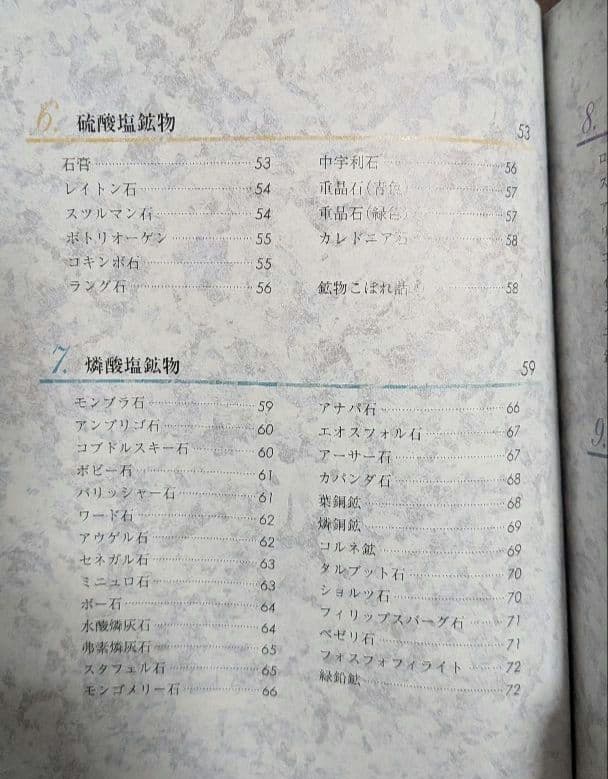 6. 硫酸塩鉱物 53
石膏 53
レイトン石 54
スツルマン石 54
ボトリオーゲン 55
コキンボ石 55
ラング石 56
中宇利石 56
重晶石(青色) 57
重晶石(緑色) 57
カレドニア石 58
鉱物こぼれ話 58
7. 燐酸塩鉱物 59
モンブラ石 59
アンブリゴ石 60
コブドルスキー石 60
ボビー石 61
バリッシャー石 61
ワード石 62
アウゲル石 62
セネガル石 63
ミニュロ石 63
ボー石 64
水酸燐灰石 64
弗素燐灰石 65
スタフェル石 65
モンゴメリー石 66
アナパ石 66
エオスフォル石 67
アーサー石 67
カバンダ石 68
葉銅鉱 68
燐銅鉱 69
コルネ鉱 69
タルブット石 70
ショルツ石 70
フィリップスバーグ石 71
ベゼリ石 71
フォスフォフィライト 72
緑鉛鉱 72
8.
9.